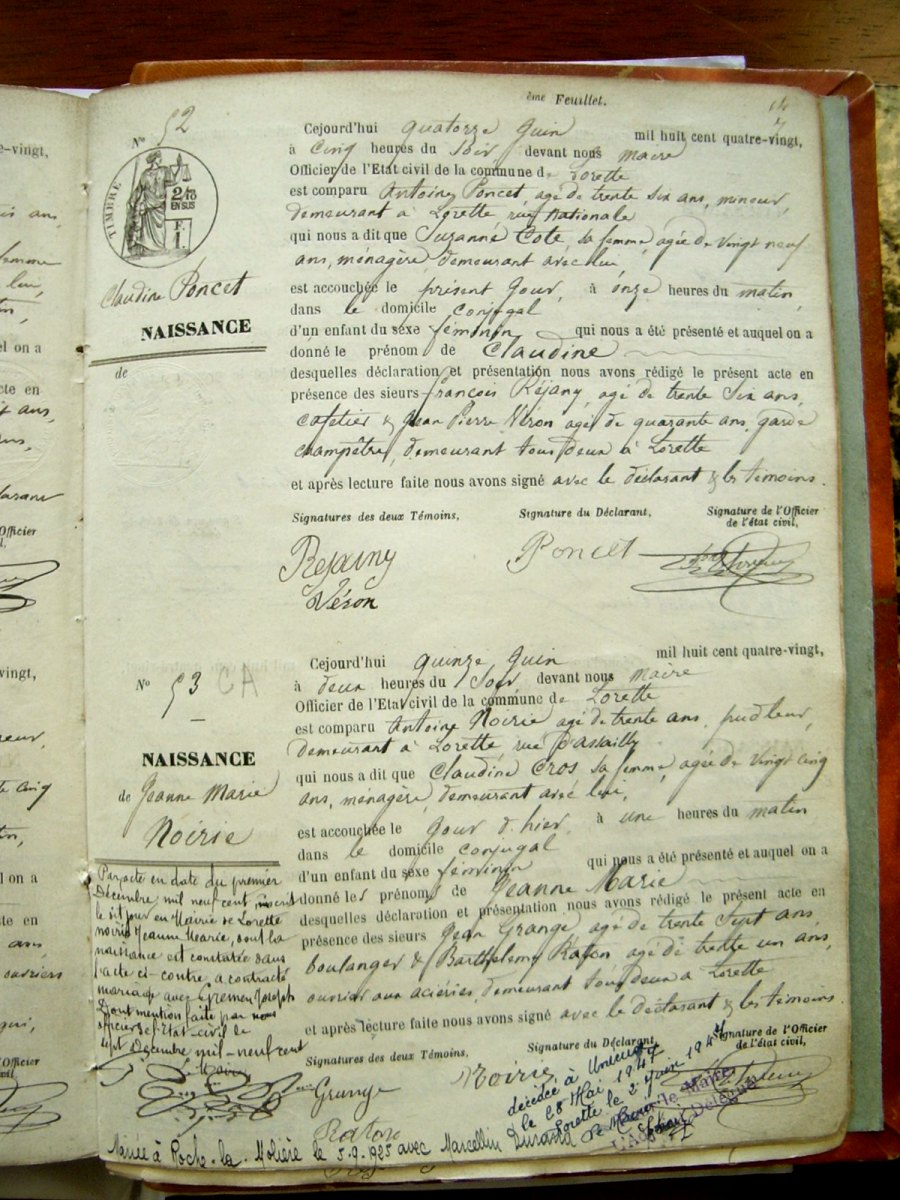 ème Feuillet.
No 52
TIMBRE
2/10
EN SUS
Claudine Poncet
NAISSANCE
de
Cejourd'hui quatorze Juin mil huit cent quatre-vingt,
à cinq heures du soir devant nous maire
Officier de l'Etat civil de la commune de Lorette
est comparu Antoine Poncet, agé de trente six ans, mineur,
demeurant à Lorette rue Nationale
qui nous a dit que Suzanne Cote, sa femme, agée de vingt neuf
ans, ménagère, demeurant avec lui,
est accouchée le présent jour, à onze heures du matin,
dans le domicile conjugal
d'un enfant du sexe féminin qui nous a été présenté et auquel on a
donné le prénom de Claudine
desquelles déclaration et présentation nous avons rédigé le présent acte en
présence des sieurs françois Réjany, agé de trente six ans,
cafetier & Jean Pierre Véron agé de quarante ans, garde
champêtre, demeurant tous deux à Lorette
et après lecture faite nous avons signé avec le déclarant & les témoins.
Signatures des deux Témoins,
Signature du Déclarant,
Signature de l'Officier
de l'état civil,
Rejainy
Véron
Poncet
No 53 CA
NAISSANCE
de Jeanne Marie
Noirie
Cejourd'hui quinze Juin mil huit cent quatre-vingt,
à deux heures du soir devant nous maire
Officier de l'Etat civil de la commune de Lorette
est comparu Antoine Noirie agé de trente ans, pudleur,
demeurant à Lorette, rue Dassailly
qui nous a dit que Claudine Cros sa femme, agée de vingt cinq
ans, ménagère, demeurant avec lui,
est accouchée le jour d'hier, à une heures du matin
dans le domicile conjugal
d'un enfant du sexe féminin qui nous a été présenté et auquel on a
donné les prénoms de Jeanne Marie
desquelles déclaration et présentation nous avons rédigé le présent acte en
présence des sieurs Jean Grange, agé de trente sept ans,
boulanger & Barthélemy Raton agé de trente un ans,
ouvrier aux aciéries, demeurant tous deux à Lorette
et après lecture faite nous avons signé avec le déclarant & les témoins.
Signatures des deux Témoins,
Signature du Déclarant,
Signature de l'Officier
de l'état civil,
Grange
Raton
Noirie
Par acte en date du premier
Décembre mil neuf cent inscrit
le dit jour en Mairie de Lorette
Noirie Jeanne Marie, dont la
naissance est constatée dans
l'acte ci-contre, a contracté
mariage avec Joseph
Dont mention faite par nous
officier de l'Etat-civil le
sept Décembre mil-neuf cent
Le Maire
décédée à Unieux
le 28 Mai 1947
Lorette le 2 Juin 1947
le Maire
Mariée à Roche-la-Molière le 5-9-1925 avec Marcellin Durand